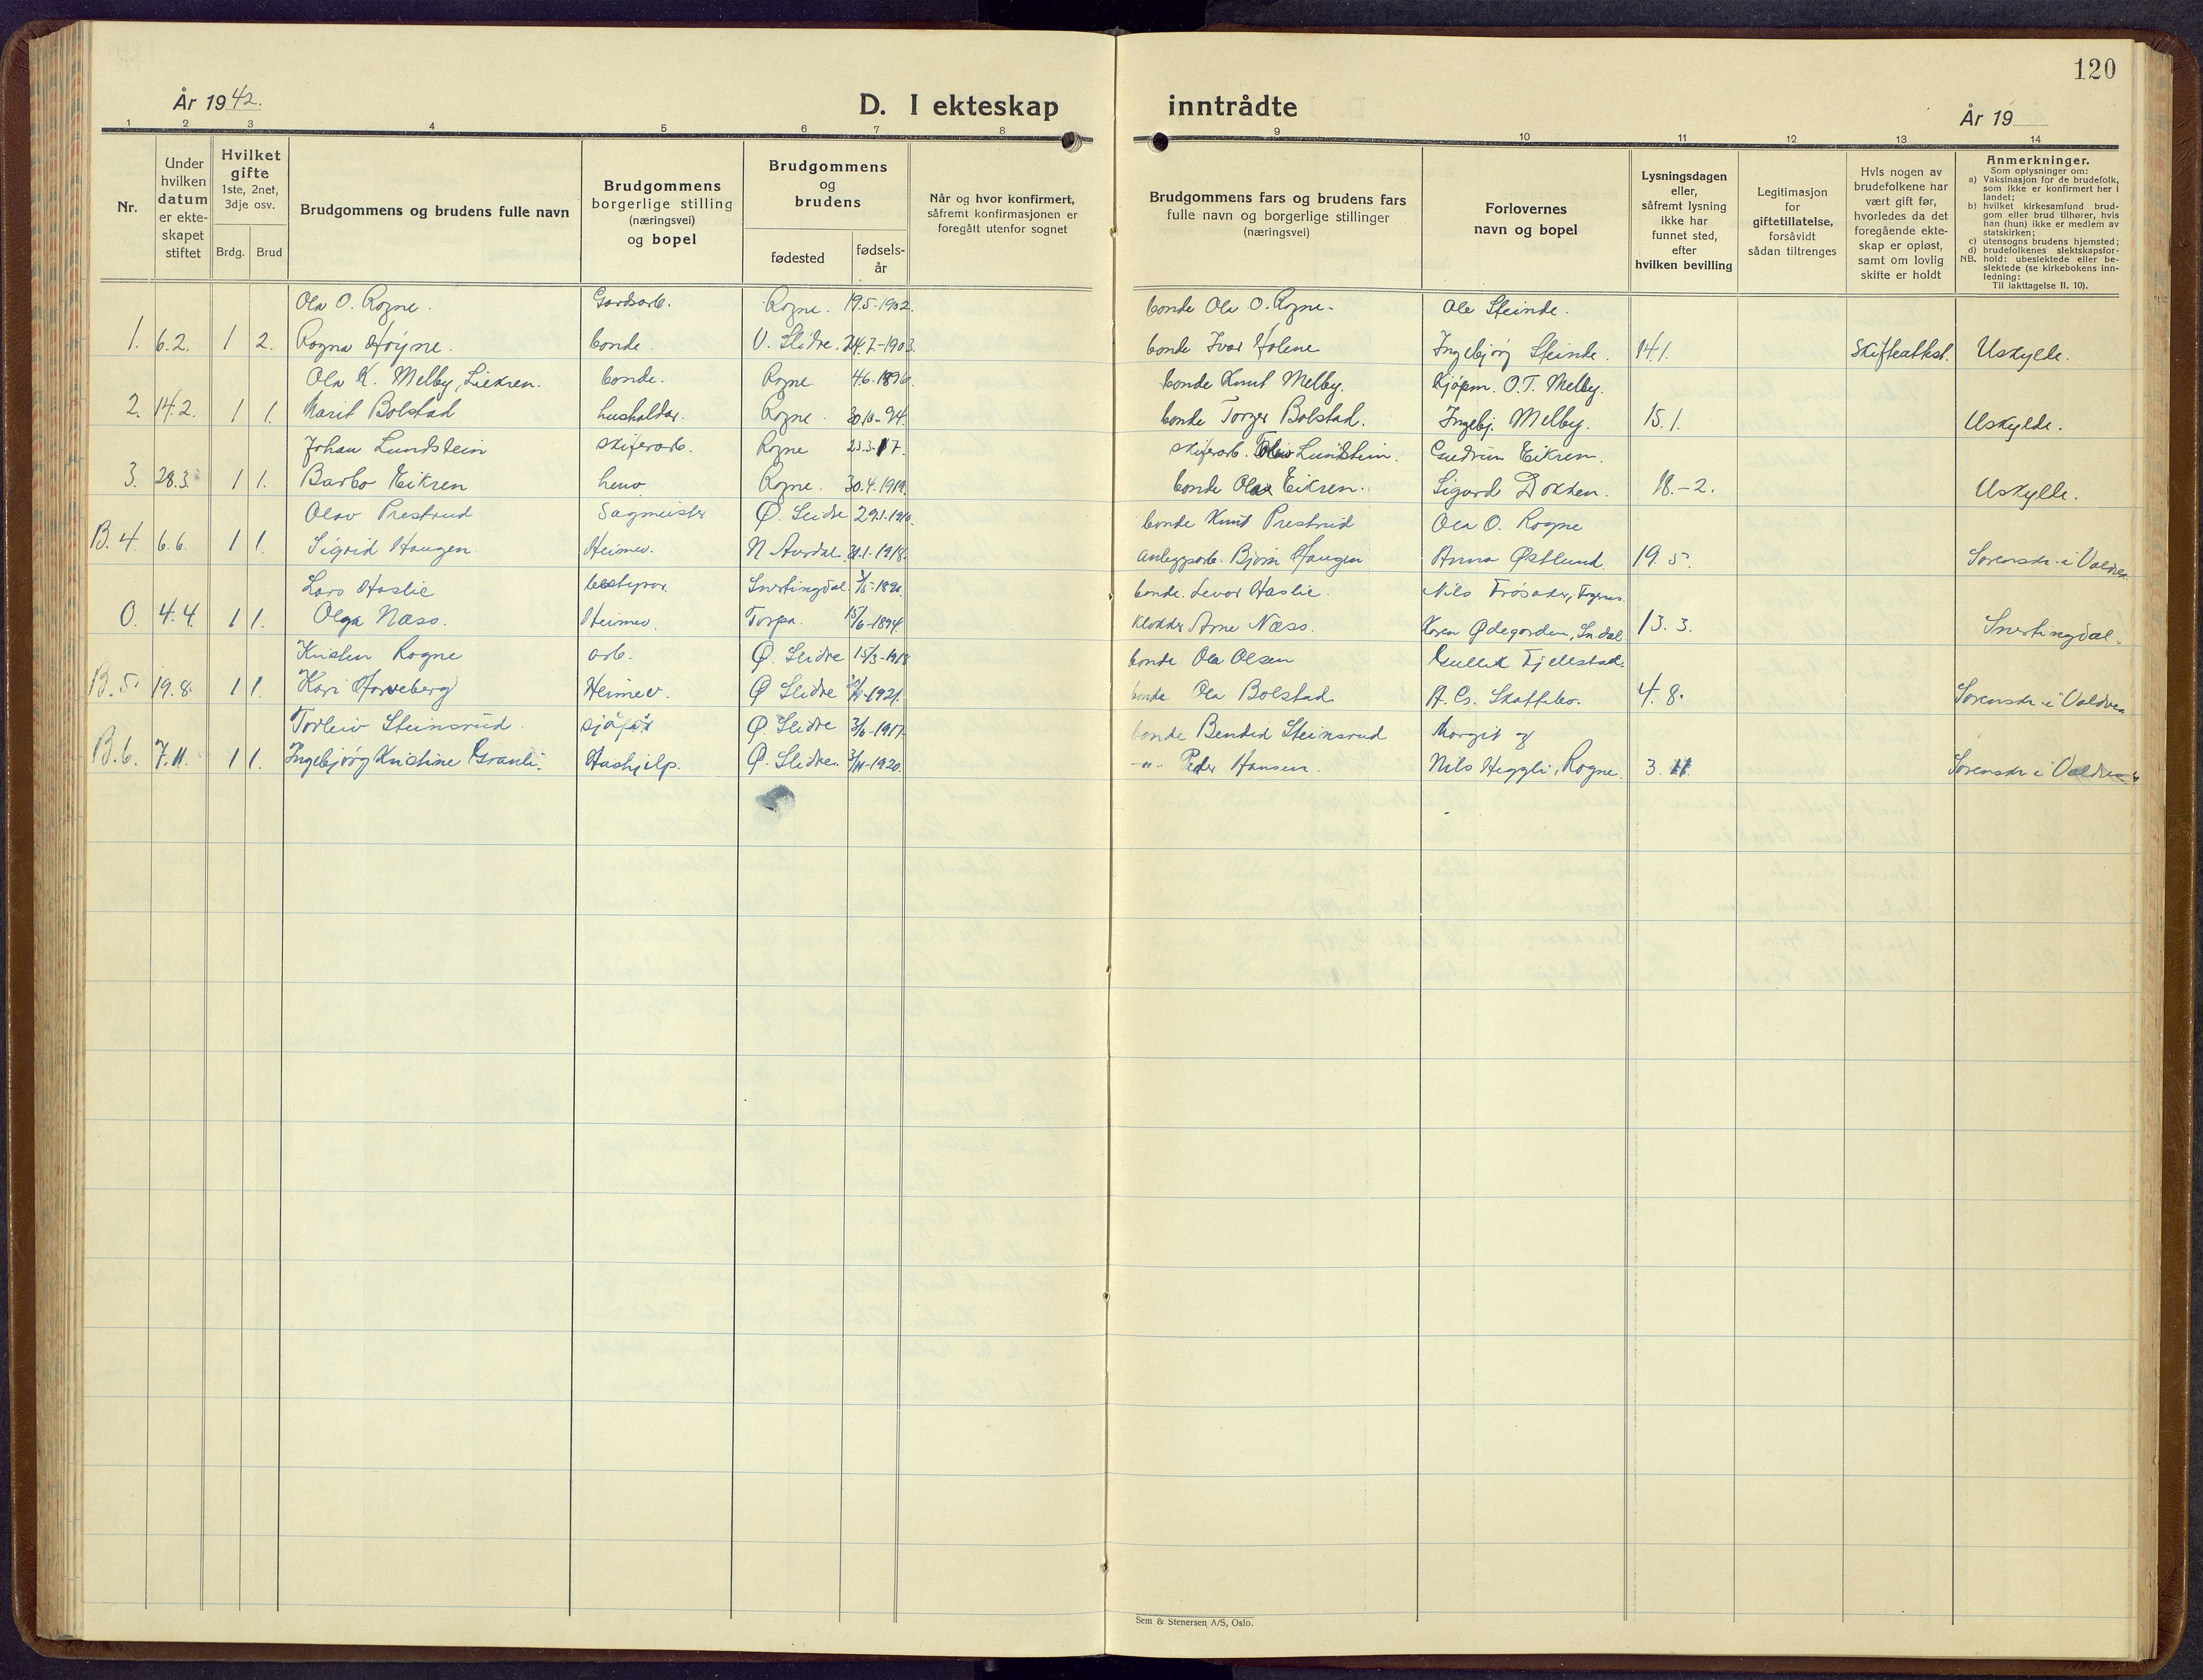 120
År 1942.
D. I ekteskap inntrådte
År 19
1 2 3 4 5 6 7 8 9 10 11 12 13 14
Nr.
Under hvilken datum er ekteskapet stiftet
Hvilket gifte 1ste, 2net, 3dje osv.
Brdg. Brud
Brudgommens og brudens fulle navn
Brudgommens borgerlige stilling (næringsvei) og bopel
Brudgommens og brudens
fødested
fødselsår
Når og hvor konfirmert, såfremt konfirmasjonen er foregått utenfor sognet
Brudgommens fars og brudens fars fulle navn og borgerlige stillinger (næringsvei)
Forlovernes navn og bopel
Lysningsdagen eller, såfremt lysning ikke har funnet sted, efter hvilken bevilling
Legitimasjon for giftetillatelse, forsåvidt sådan tiltrenges
Hvis nogen av brudefolkene har vært gift før, hvorledes da det foregående ekteskap er opløst, samt om lovlig skifte er holdt
Anmerkninger.
Som oplysninger om:
a) Vaksinasjon for de brudefolk, som ikke er konfirmert her i landet;
b) hvilket kirkesamfund brudgom eller brud tilhører, hvis han (hun) ikke er medlem av statskirken;
c) utensogns brudens hjemsted;
d) brudefolkenes slektskapsforhold: ubeslektede eller beslektede (se kirkebokens innledning:
NB.
Til iakttagelse II. 10).
Ola O. Rogne. Gardsarb. Rogne. 19.5-1902. bonde Ola O. Rogne. Ole Steinde.
1. 6.2. 1 2. Ragna Høyne. bonde. V. Slidre. 24.7-1903. bonde Ivar Holene Ingebjørg Steinde. 14.1. Skifteattest. Uskylde.
Ola K. Melby, Liekren. bonde. Rogne. 4.6.1896. bonde Knut Melby. Kjøpm. O.T. Melby.
2. 14.2. 1 1. Marit Bolstad husholdar. Rogne. 30.10-94. bonde Torger Bolstad. Ingebj. Melby. 15.1. Uskylde.
Johan Lundstein skiferarb. Rogne 23.3.17. skiferarb. Lundstein. Gudrun Eikren.
3. 28.3. 1 1. Barbo Eikren heno Rogne. 30.4.1919. bonde Olav Eikren. Sigurd Dokken. 18.-2. Uskylle.
Olav Prestrud Sagmeister Ø. Slidre 29.1.1910. bonde Knut Prestrud Ola O. Rogne
B. 4. 6.6. 1 1. Sigrid Haugen. Heimev. N Aurdal. 1918. anleggsarb. Bjørn Haugen Anna Østlund. 19.5. Sorenskr. i Valdres
Lars Haslie bestyrar. Snertingdal. bonde. Levor Haslie. Nils Frøsaker, Fagernes.
O. 4.4. 1 1. Olga Næss. Heimev. Torpa. 15/6-1894. klokker Arne Næss. Karen Ødegarden, Sn.dal 13.3. Snertingdal.
Kristen Rogne arb. Ø. Slidre 15/3-1918 bonde Ola Olsen Gullik Fjellstad.
B. 5. 19.8. 1 1. Kari Harveberg Heimev. Ø Slidre 1921. bonde Ola Bolstad A. G. Skattebo. 4.8. Sorenskr. i Valdres
Torleiv Steinsrud. sjåfør Ø. Slidre 3/6-1917. bonde Bendik Steinsrud Margit og
B. 6. 7.11. 1 1. Ingebjørg Kristine Granli. Hushjelp. Ø. Slidre. 3/11-1920. -"- Peder Hansen. Nils Heggli, Rogne. 3.11. Sorenskr i Valdres
Sem & Stenersen A/S, Oslo.